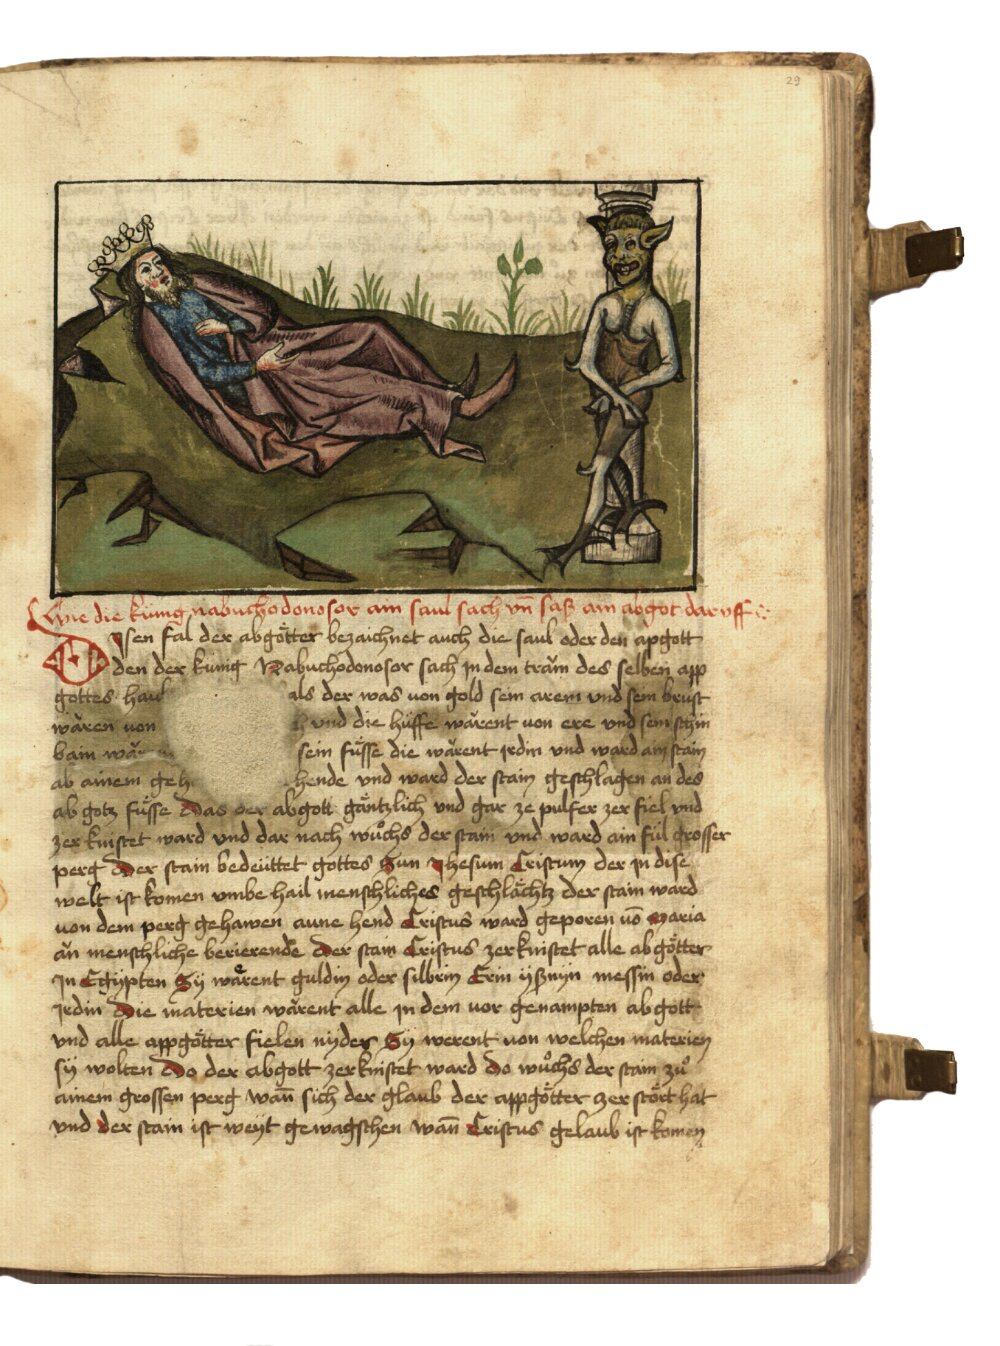 29
Wie die küng nabuchodonosor ain saul sach vn̄ sasz ain abgot daruff
Disen fal der abgötter bezaichnet auch die saul oder den apgott
den der küng Nabuchodonosor sach in dem tram̄ des selben app
gottes hau als der was von gold sein arem und sein brust
wären von und die hüffe wärent von ere und sein
bain wär sein füsse die wärent jrdin und ward ain stain
ab ainem geh hende und ward der stain geschlagen an des
ab gotz füsse Das der abgott gäntzlich und gar ze pulfer zer fiel und
zer knistet ward und dar nach wůchs der stain und ward ain fil grosser
perg Der stain bedeüttet gottes Sun Jhesum Cristum der in dise
welt ist komen umbe hail menschliches geschlächtz der stain ward
von dem perg gehawen aune hend Cristus ward geporen vō Maria
än menschliche berierende Der stain Cristus zerknistet alle abgötter
In Egypten Sy wärent guldin oder silbrin Erin ysznyn messin oder
jrdin Die materien wärent alle jn dem vor genampten abgott
und alle appgötter fielen nyder Sy werent von welchen materien
sy wolten Do der abgott zerknistet ward Do wůchs der stain zů
ainem grossen perg wan̄ sich der glaub der appgötter zerstört hat
und der stain ist weyt gewagschen wan̄ Cristus gelaub ist komen